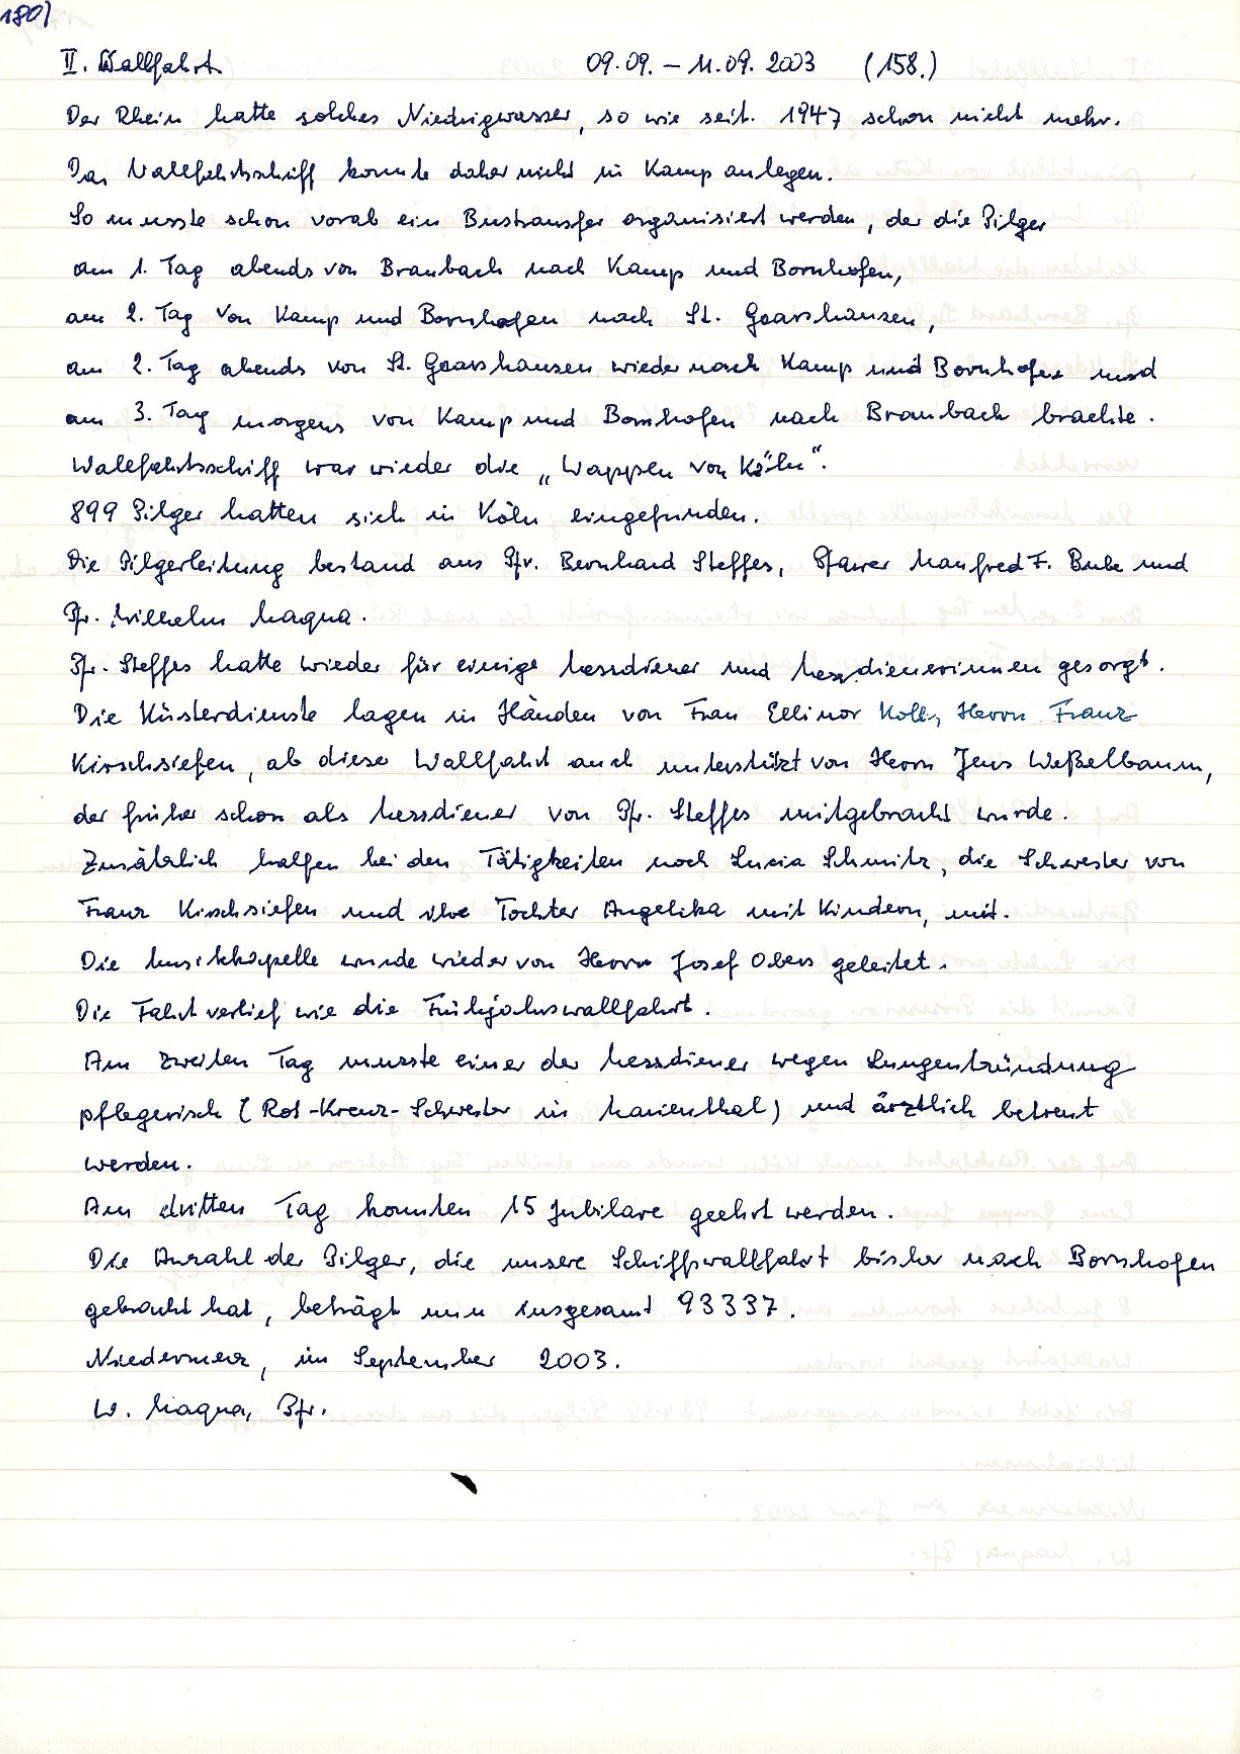 180)
II. Wallfahrt 09.09. – 11.09. 2003 (158.)
Der Rhein hatte solches Niedrigwasser, so wie seit 1947 schon nicht mehr.
Das Wallfahrtsschiff konnte daher nicht in Kamp anlegen.
So musste schon vorab ein Bustransfer organisiert werden, der die Pilger
am 1. Tag abends von Braubach nach Kamp und Bornhofen,
am 2. Tag von Kamp und Bornhofen nach St. Goarshausen,
am 2. Tag abends von St. Goarshausen wieder nach Kamp und Bornhofen und
am 3. Tag morgens von Kamp und Bornhofen nach Braubach brachte.
Wallfahrtsschiff war wieder die „Wappen von Köln“.
899 Pilger hatten sich in Köln eingefunden.
Die Pilgerleitung bestand aus Pfr. Bernhard Steffes, Pfarrer Manfred F. Bube und
Pfr. Wilhelm Maqua.
Pfr. Steffes hatte wieder für einige Messdiener und Messdienerinnen gesorgt.
Die Küsterdienste lagen in Händen von Frau Ellinor Koll, Herrn Franz
Kirschsiefen, ab dieser Wallfahrt auch unterstützt von Herrn Jens Weßelbaum,
der früher schon als Messdiener von Pfr. Steffes mitgebracht wurde.
Zusätzlich halfen bei den Tätigkeiten noch Lucia Schmitz, die Schwester von
Franz Kirschsiefen und ihre Tochter Angelika mit Kindern, mit.
Die Musikkapelle wurde wieder von Herrn Josef Obers geleitet.
Die Fahrt verlief wie die Frühjahrswallfahrt.
Am zweiten Tag musste einer der Messdiener wegen Lungenentzündung
pflegerisch (Rot-Kreuz-Schwester in Marienthal) und ärztlich betreut
werden.
Am dritten Tag konnten 15 Jubilare geehrt werden.
Die Anzahl der Pilger, die unsere Schiffswallfahrt bisher nach Bornhofen
gebracht hat, beträgt nun insgesamt 93337.
Niedermerz, im September 2003.
W. Maqua, Pfr.